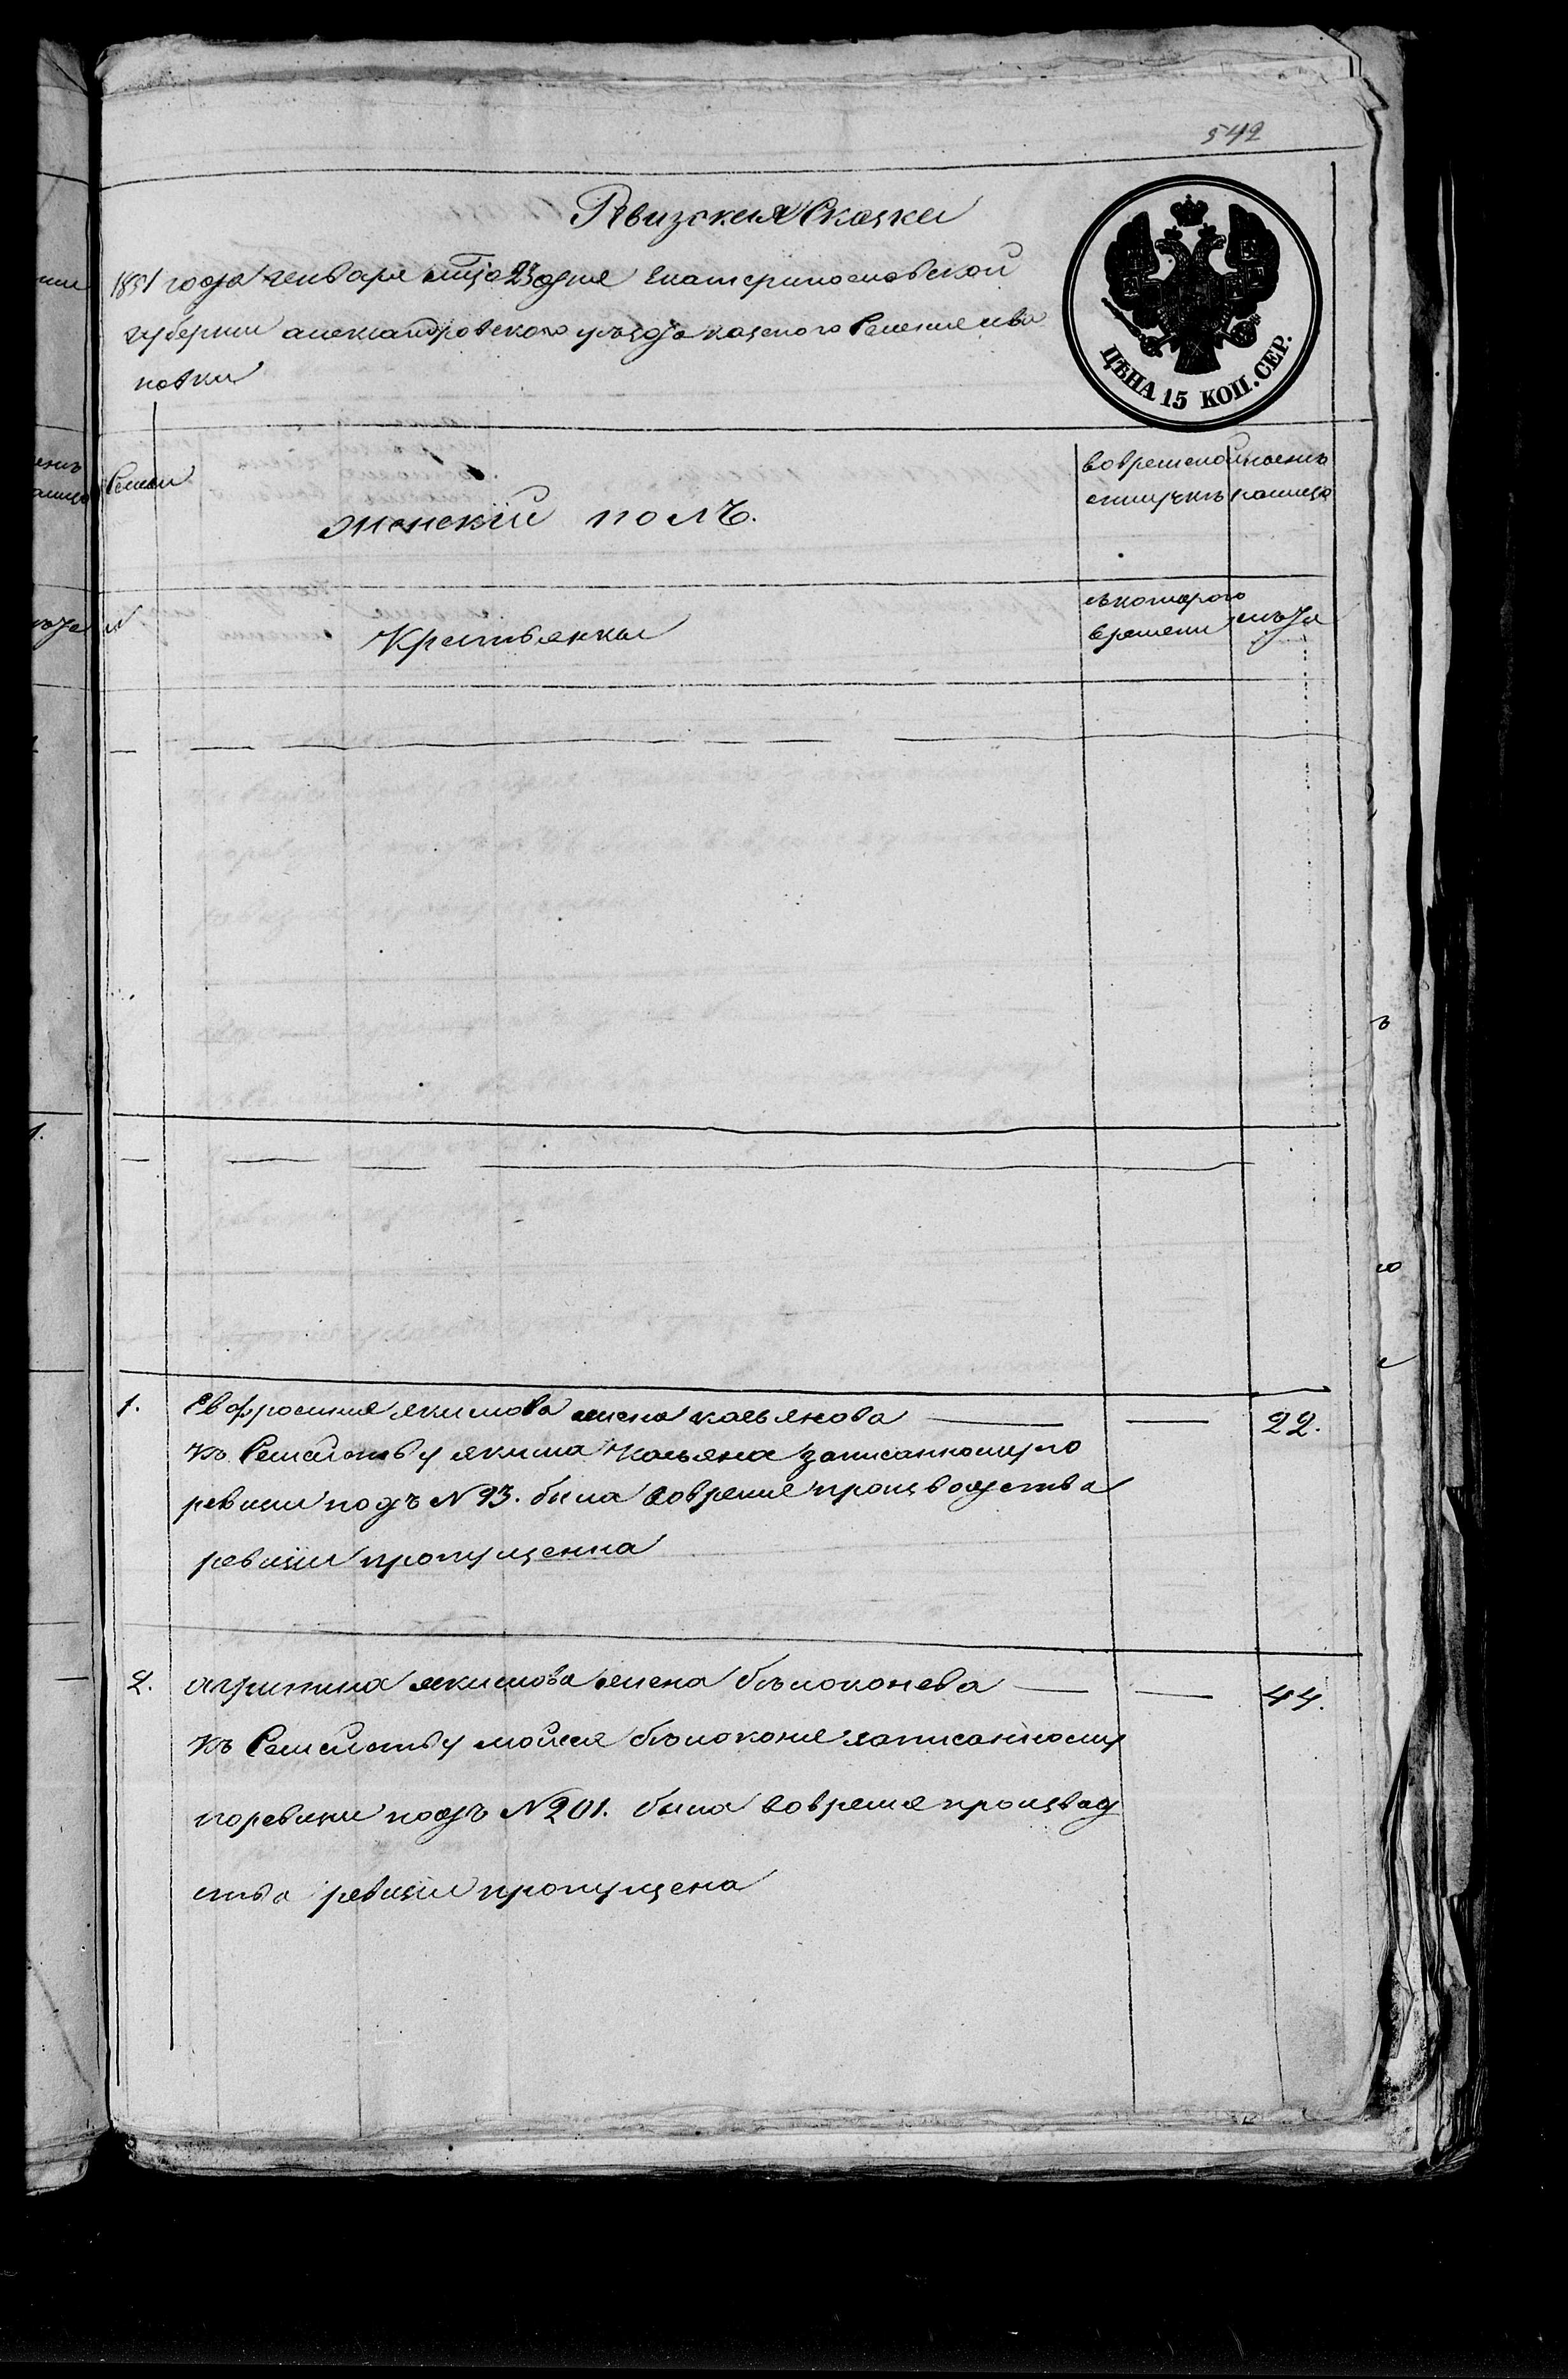 542
Ревизская Сказка
1851 года генваря мца 23 дня Екатеринославской
губернии александровского уѣзда казеного Селения ива
новки
ЦѢНА 15 КОП. СЕР.
Семьи
женский полъ.
вовременной
отлучкѣ
ныенъ
налицо
№
Крестьянки
съкоторого
времени
лѣта
1. Евфросиния якимова жена касьянова — — 22.
Къ Семейству якима Касьяна записанному по
ревизии подъ №93. была вовремя производства
ревизии пропущенна
2. агрипина якимова жена бѣлоконева — — 44.
Къ Семейству мойсея бѣлоконя записанному
поревизии подъ №201. была вовремя производ
ства ревизии пропущена